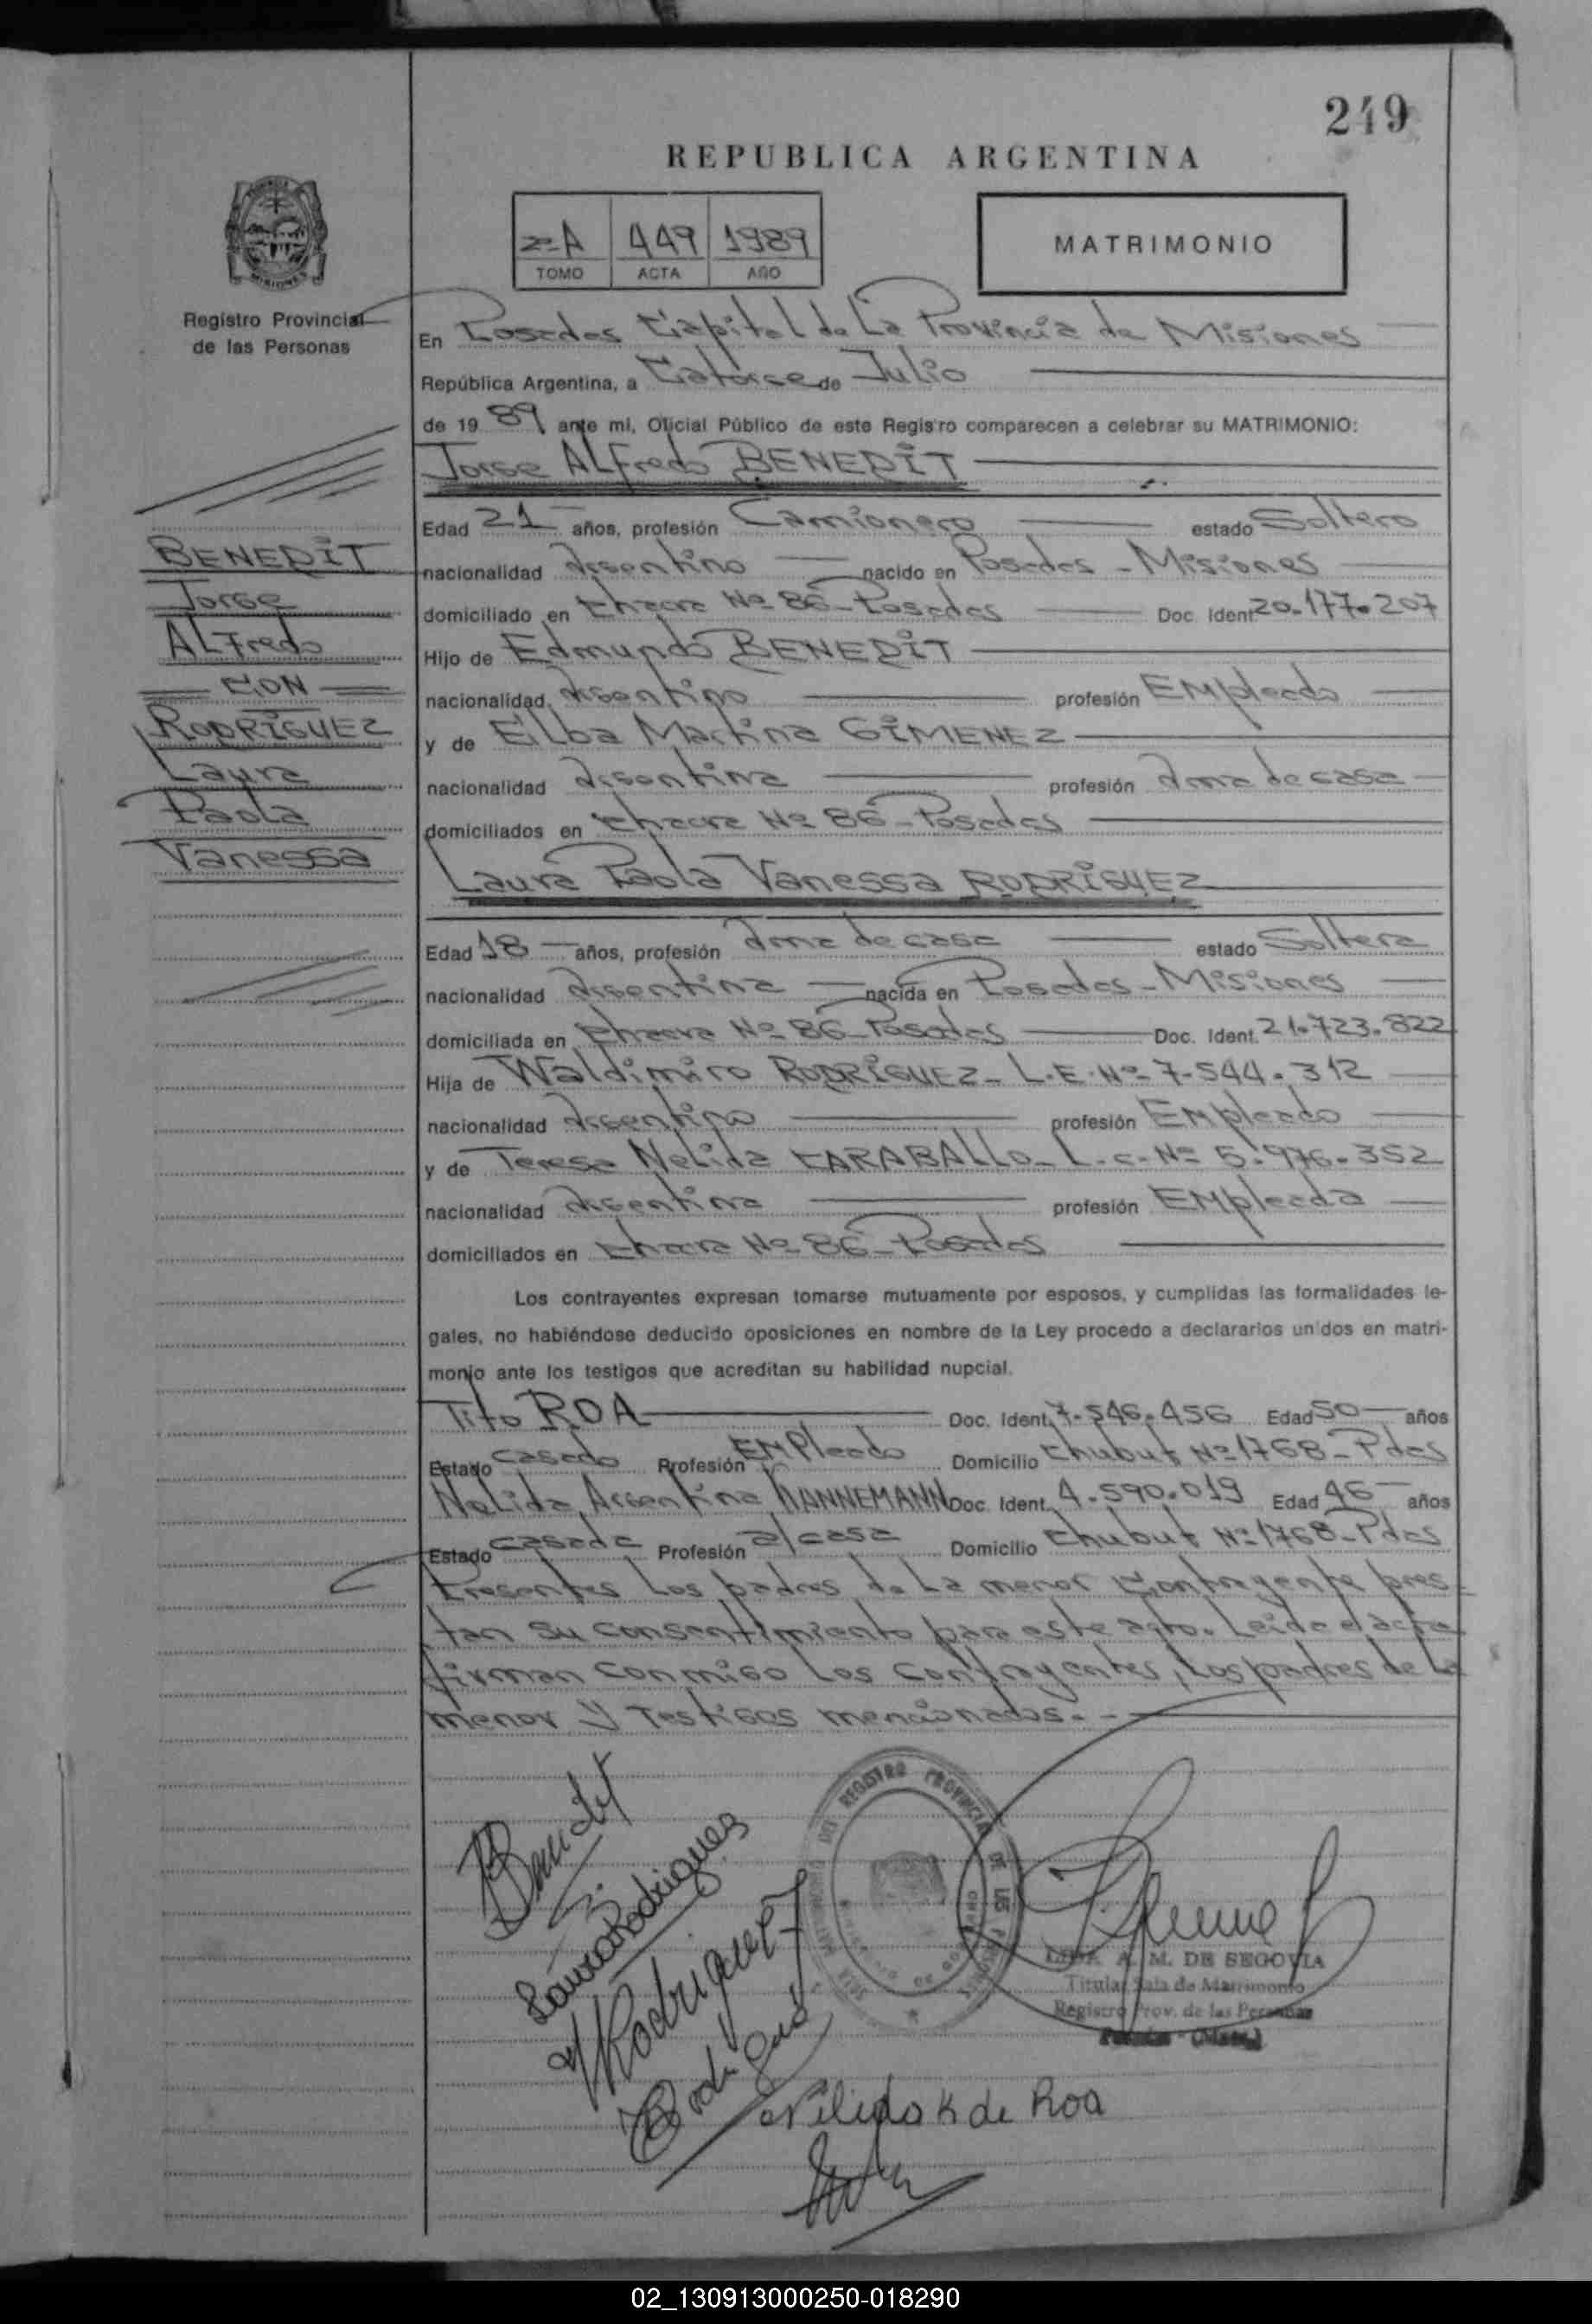 249
REPUBLICA ARGENTINA
2=A 449 1989
TOMO ACTA AÑO
MATRIMONIO
Registro Provincial
de las Personas
En Posadas Capital de La Provincia de Misiones
República Argentina, a Catorce de Julio
de 19 89 ante mi, Oficial Público de este Registro comparecen a celebrar su MATRIMONIO:
Jorge ALfredo BENEDIT
Edad 21 años, profesión Camionero estado Soltero
nacionalidad Argentino nacido en Posadas - Misiones
domiciliado en Chacra Nº 86 - Posadas Doc. Ident. 20.177.207
Hijo de Edmundo BENEDIT
nacionalidad Argentino profesión EMpleado
y de Elba Martina GIMENEZ
nacionalidad Argentina profesión Ama de casa
domiciliados en Chacra Nº 86 - Posadas
Laura Paola Vanessa RODRIGUEZ
Edad 18 años, profesión Ama de casa estado Soltera
nacionalidad Argentina nacida en Posadas - Misiones
domiciliada en Chacra Nº 86 - Posadas Doc. Ident. 21.723.822
Hija de Waldimiro RODRIGUEZ - L.E. Nº 7.544.312
nacionalidad Argentino profesión EMpleado
y de Teresa Nelida CARABALLO - L.C. Nº 5.976.352
nacionalidad Argentina profesión EMpleada
domiciliados en Chacra Nº 86 - Posadas
Los contrayentes expresan tomarse mutuamente por esposos, y cumplidas las formalidades le-
gales, no habiéndose deducido oposiciones en nombre de la Ley procedo a declararlos unidos en matri-
monio ante los testigos que acreditan su habilidad nupcial.
Tito ROA Doc. Ident. 7.546.456 Edad 50 años
Estado Casado Profesión EMPleado Domicilio Chubut Nº 1768 - Pdas
Nelida Argentina HANNEMANN Doc. Ident. 4.590.019 Edad 46 años
Estado Casada Profesión a/casa Domicilio Chubut Nº 1768 - Pdas
Presentes Los padres de La menor Contrayente pres-
tan su consentimiento para este acto. Leida el acta
firman conmigo Los Contrayentes, Los padres de La
menor y Testigos mencionados. -
BENEDIT
Jorge
ALfredo
CON
RODRIGUEZ
Laura
Paola
Vanessa
Benedit
Laura Rodriguez
Rodriguez
Nelida K de Roa
REGISTRO PROVINCIAL DE LAS PERSONAS
A. M. DE SEGOVIA
Titular Sala de Matrimonio
Registro Prov. de las Personas
02_130913000250-018290